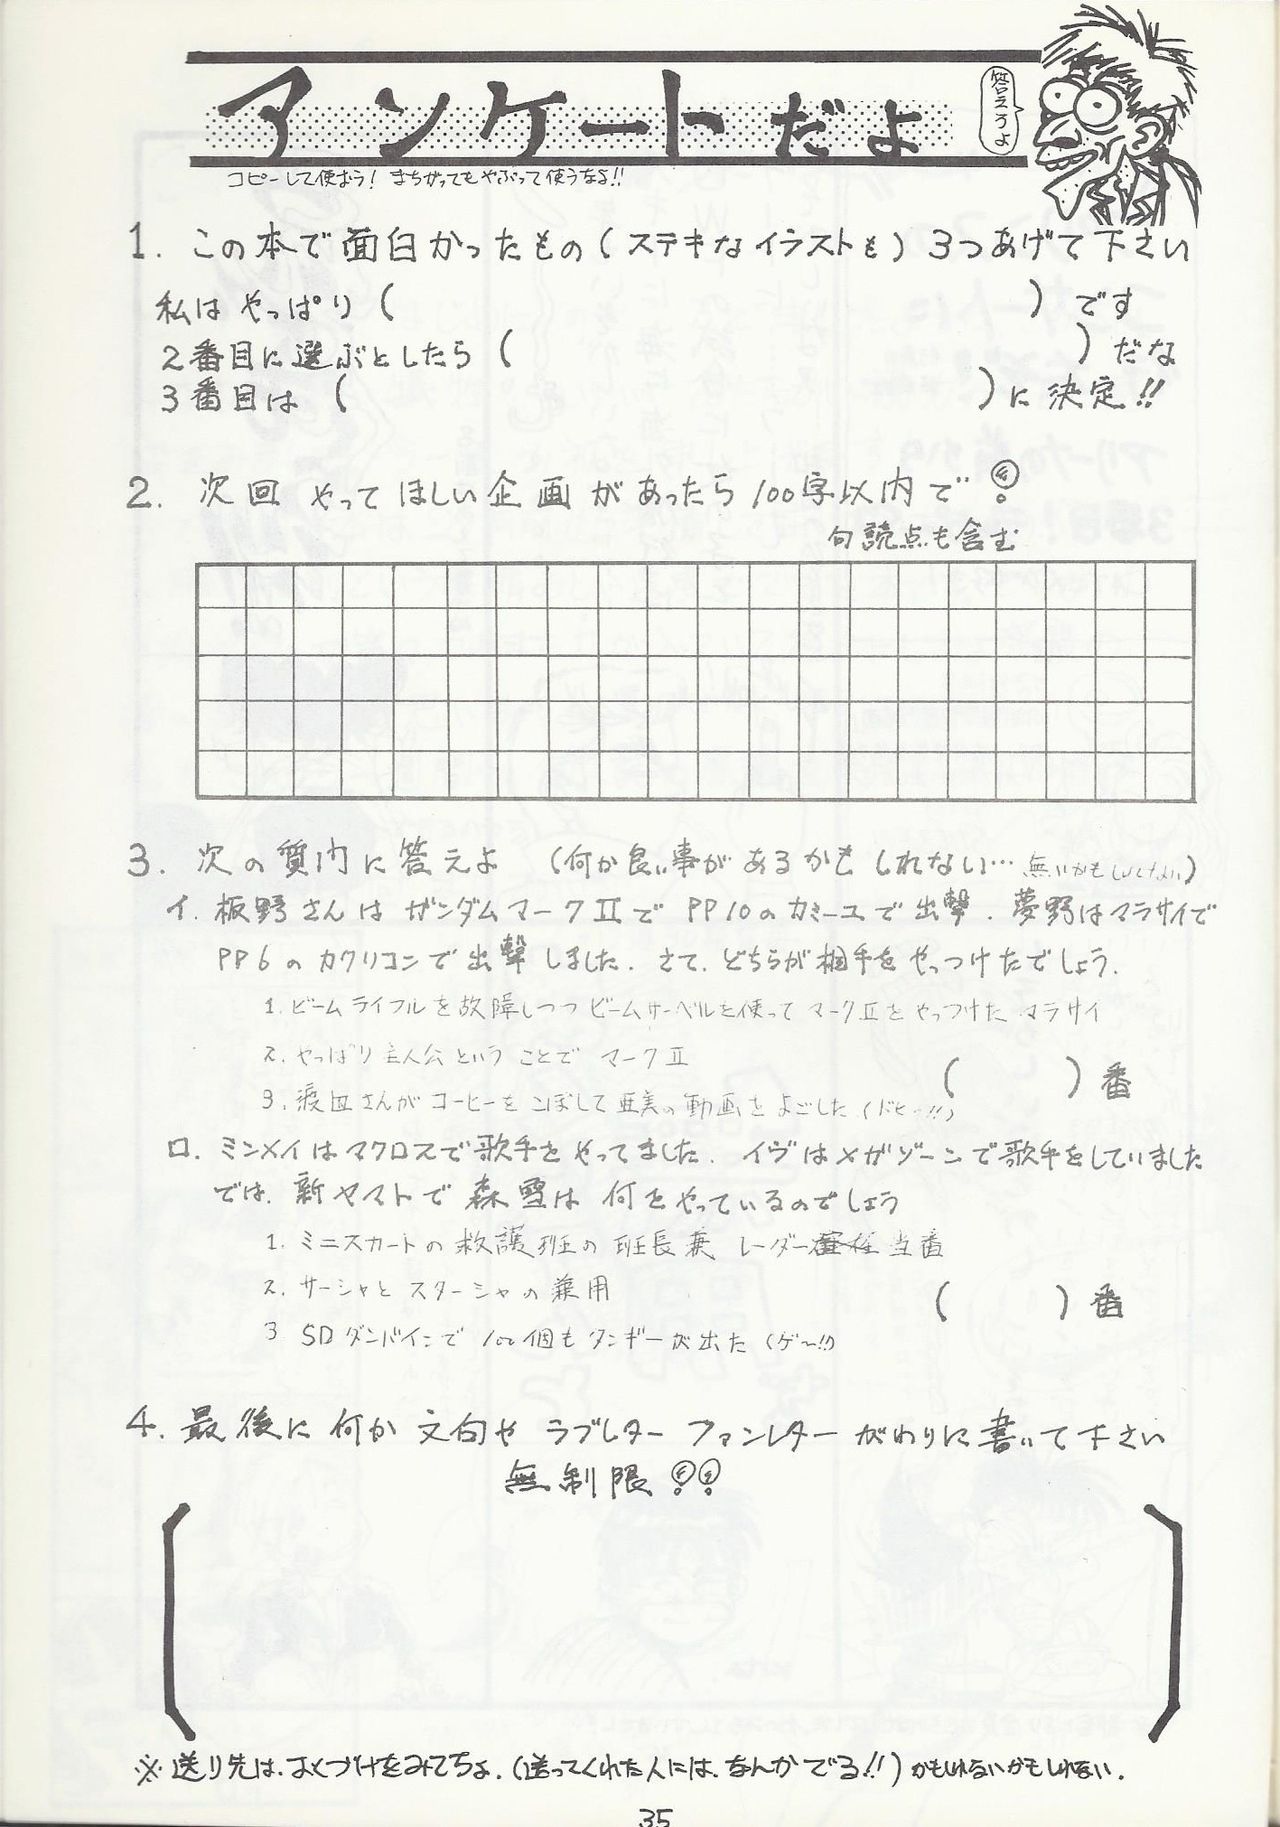 アンケートだよ
答えろよ
コピーして使おう! まちがってもやぶって使うなよ!!
1. この本で面白かったもの(ステキなイラストも)3つあげて下さい
私は やっぱり ( ) です
2番目に選ぶとしたら ( ) だな
3番目は ( ) に 決定!!
2. 次回 やって ほしい 企画 が あったら 100字以内で
句読点も含む
3. 次の 質内 に 答えよ (何か良い事が あるかも しれない… 無いかもしれない)
イ. 板野さんは ガンダムマークⅡで PP10のカミーユで 出撃. 夢野はマラサイで
PP6の カクリコンで 出撃 しました. さて. どちらが相手を やっつけたでしょう.
1. ビームライフルを故障しつつ ビームサーベルを使って マークⅡを やっつけた マラサイ
2. やっぱり 主人公 という ことで マークⅡ
3. 渡辺さんが コーヒーを こぼして 亜美の 動画を よごした (ドヒー!!)
( ) 番
ロ. ミンメイは マクロスで歌手を やってました. イヴは メガゾーンで歌手をしていました
では. 新ヤマトで 森雪は 何を やっているのでしょう
1. ミニスカートの 救護班の 班長兼 レーダー 当番
2. サーシャと スターシャの 兼用
3 SDダンバインで 100個も タンギーが出た (ゲー!!)
( ) 番
4. 最後に 何か 文句や ラブレター ファンレター がわりに 書いて 下さい
無制限
※送り先は. おくづけをみてちょ. (送ってくれた人には. なんかでる!!) かもしれないかもしれない.
35